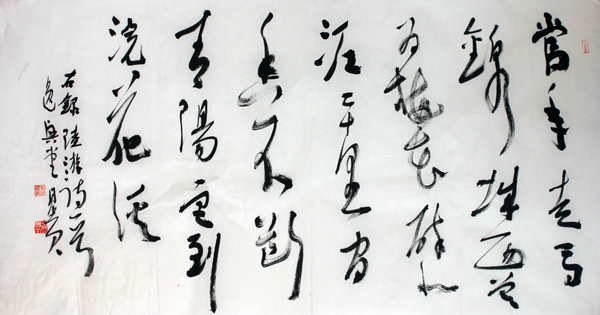 當年走馬
錦城西曾
为梅花醉似
泥二十里中
香不斷
青陽宮到
浣花溪
右錄陸游詩一首
逸興堂